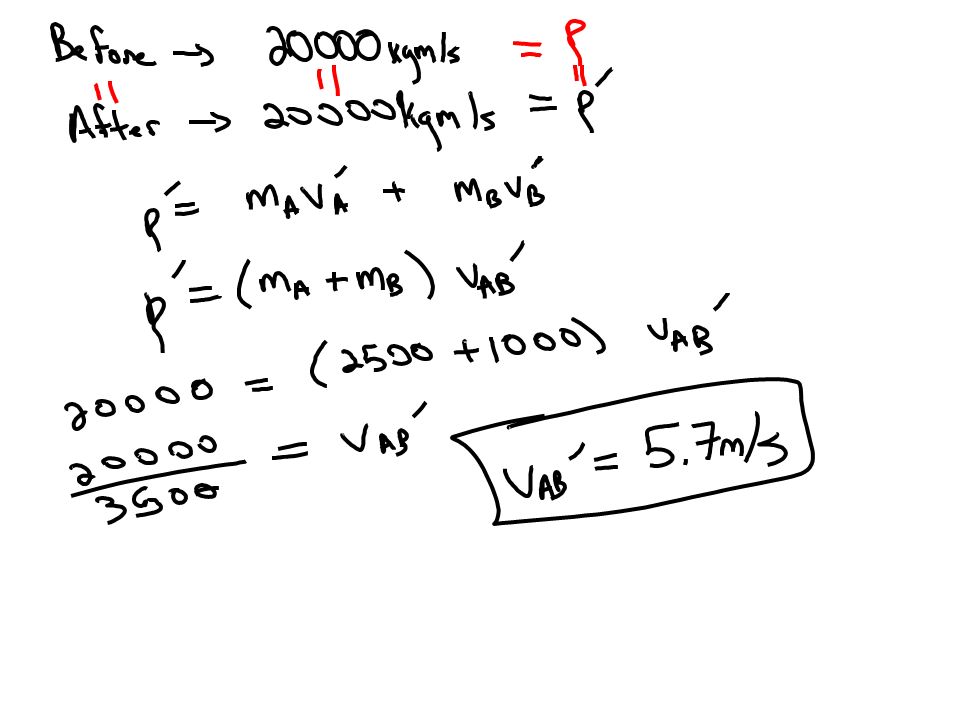 Before → 20000kgm/s = p
= = =
After → 20000kgm/s = p'
p' = mAvA' + mBvB'
p' = (mA + mB) vAB'
20000 = (2500 + 1000) vAB'
20000/3500 = vAB'
vAB' = 5.7m/s